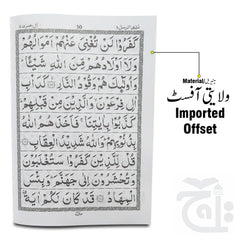 تلك الرسل ٣
50
آل عمرٰن ٣
كَفَرُوْا لَنْ تُغْنِيَ عَنْهُمْ اَمْوَالُهُمْ
وَلَاۤ اَوْلَادُهُمْ مِّنَ اللّٰهِ شَيْـًٔا ؕ
وَاُولٰٓئِكَ هُمْ وَقُوْدُ النَّارِ ۙ كَدَاْبِ
اٰلِ فِرْعَوْنَ ۙ وَالَّذِيْنَ مِنْ قَبْلِهِمْ ؕ
كَذَّبُوْا بِاٰيٰتِنَا ۚ فَاَخَذَهُمُ اللّٰهُ
بِذُنُوْبِهِمْ ؕ وَاللّٰهُ شَدِيْدُ الْعِقَابِ
قُلْ لِّلَّذِيْنَ كَفَرُوْا سَتُغْلَبُوْنَ
وَتُحْشَرُوْنَ اِلٰى جَهَنَّمَ ؕ وَبِئْسَ
الْمِهَادُ قَدْ كَانَ لَكُمْ اٰيَةٌ
Material
ولایتی آفسٹ
Imported
Offset